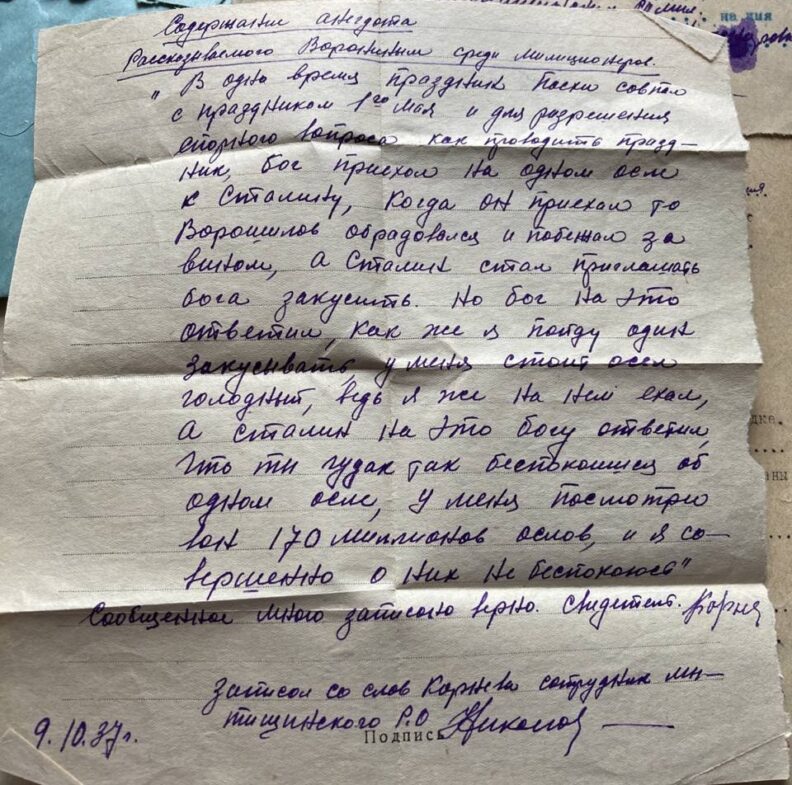 Содержание анекдота
Рассказываемого Ворониным среди милиционеров.
"В одно время праздник Пасхи совпал
с праздником 1го мая и для разрешения
спорного вопроса как проводить празд-
ник, бог приехал на одном осле
к Сталину, когда он приехал то
Ворошилов обрадовался и побежал за
вином, а Сталин стал приглашать
бога закусить. Но бог на это
ответил, как же я пойду один
закусывать, у меня стоит осел
голодный, ведь я же на нем ехал,
а Сталин на это богу ответил,
что ты чудак так беспокоишся об
одном осле, у меня посмотри
вон 170 миллионов ослов, и я со-
вершенно о них не беспокоюсь"
Сообщенное мною записано верно. Свидетель.
Записал со слов Корнева сотрудник мы-
тищинского Р.О
Подпись
9.10.37г.